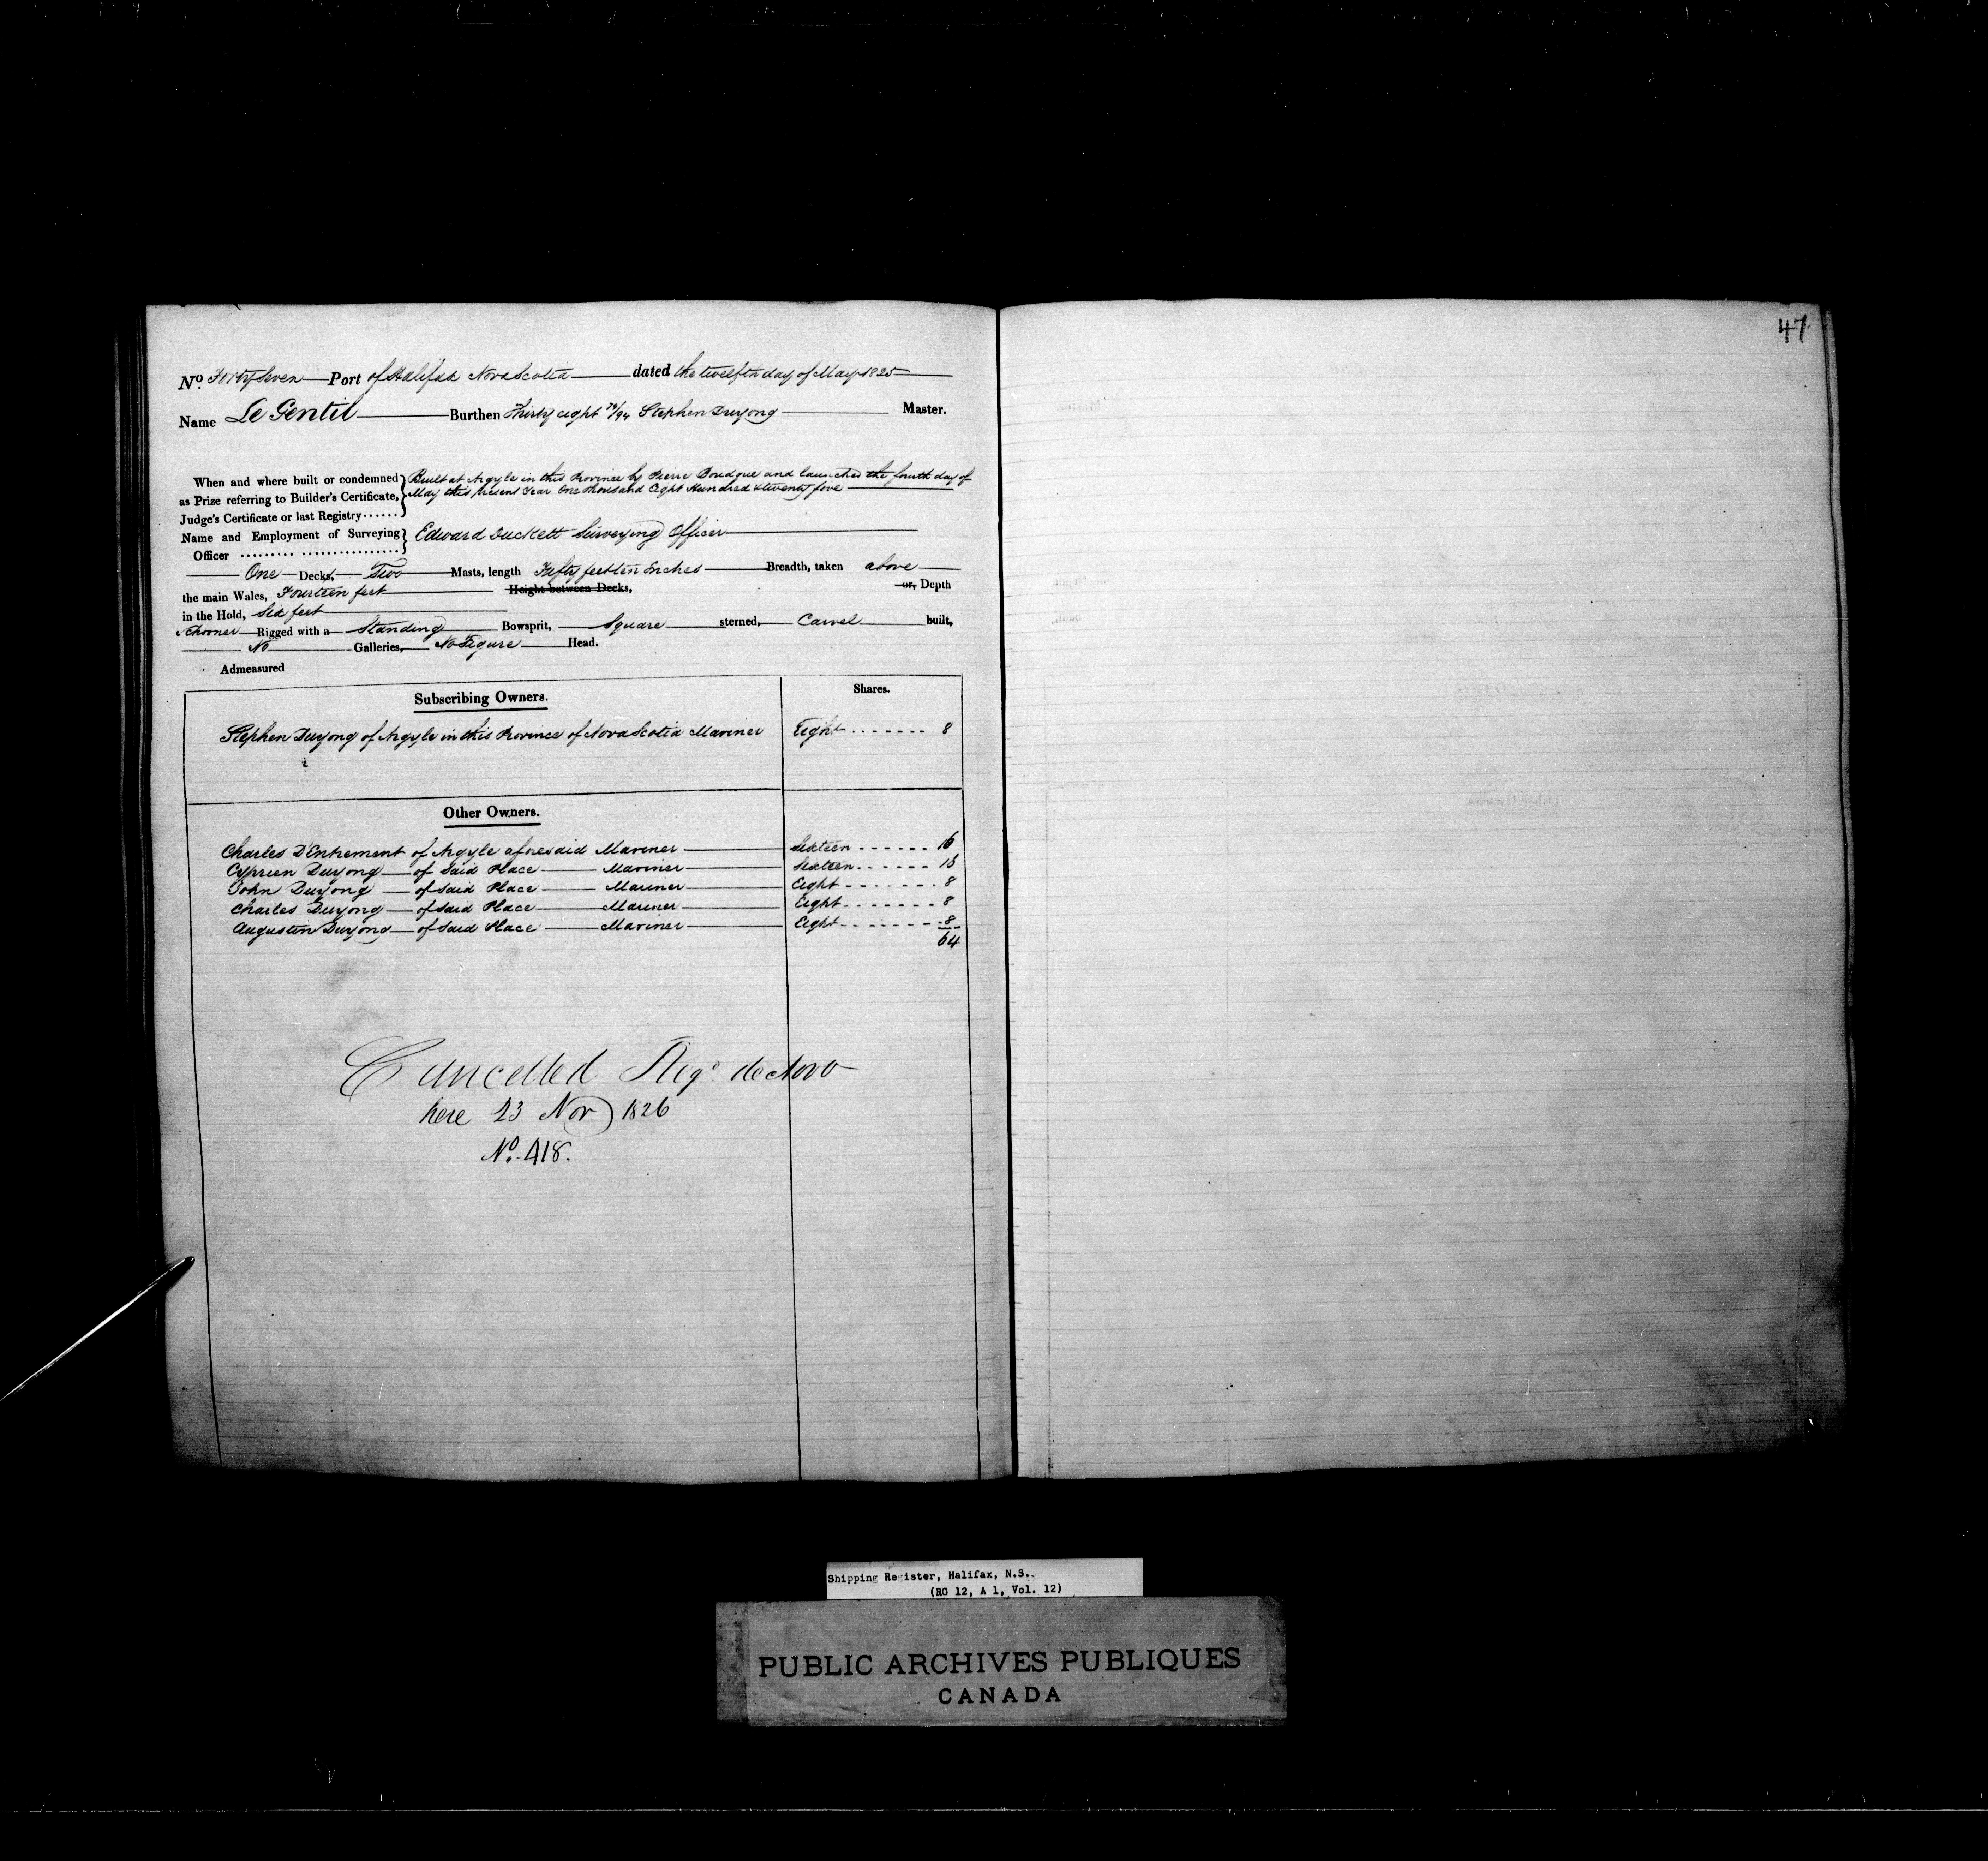 47
No. Forty Seven Port of Halifax Nova Scotia dated the twelfth day of May 1825
Name Le Gentil Burthen Thirty eight 79/94 Stephen Duyong Master.
When and where built or condemned Built at Argyle in this Province by Pierre Boudque and launched the fourth day of
as Prize referring to Builder's Certificate, May this present Year One thousand Eight Hundred & twenty five
Judge's Certificate or last Registry
Name and Employment of Surveying Edward Duckett Surveying Officer
Officer
One Decks, Two Masts, length Fifty feet ten Inches Breadth, taken above
the main Wales, Fourteen feet Height between Decks, or, Depth
in the Hold, Six feet
Schooner Rigged with a Standing Bowsprit, Square sterned, Carvel built,
No Galleries, No Figure Head.
Admeasured
Subscribing Owners. Shares.
Stephen Duyong of Argyle in this Province of Nova Scotia Mariner Eight ....... 8
Other Owners.
Charles D'Entremont of Argyle aforesaid Mariner Sixteen ------ 16
Cyprien Duyong of Said Place Mariner Sixteen ------ 16
John Duyong of Said Place Mariner Eight ------- 8
Charles Duyong of Said Place Mariner Eight ------- 8
Augustin Duyong of Said Place Mariner Eight ------- 8
64
Cancelled Regd. de Novo
here 23 Nov 1826
No. 418.
Shipping Register, Halifax, N.S.
(RG 12, A 1, Vol. 12)
PUBLIC ARCHIVES PUBLIQUES
CANADA